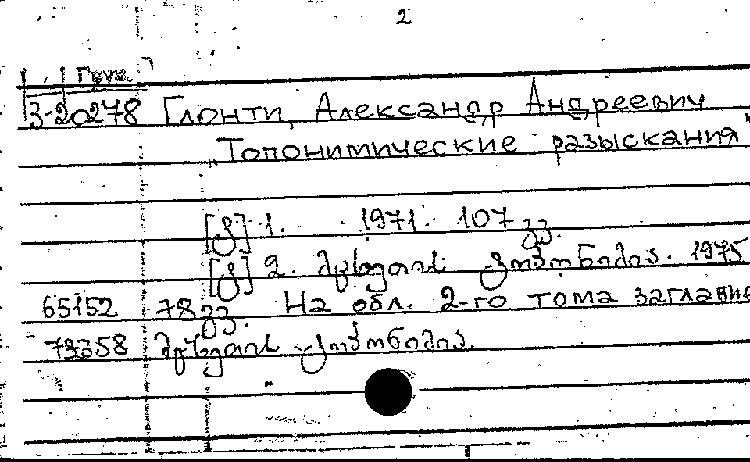 2
Груз.
3-20278 Глонти, Александр Андреевич
„Топонимические разыскания"
[წ] 1. 1971. 107 გვ.
[წ] 2. მესხეთის ტოპონიმია. 1975
65152 78 გვ. На обл. 2-го тома заглавие
73358 მესხეთის ტოპონიმია.